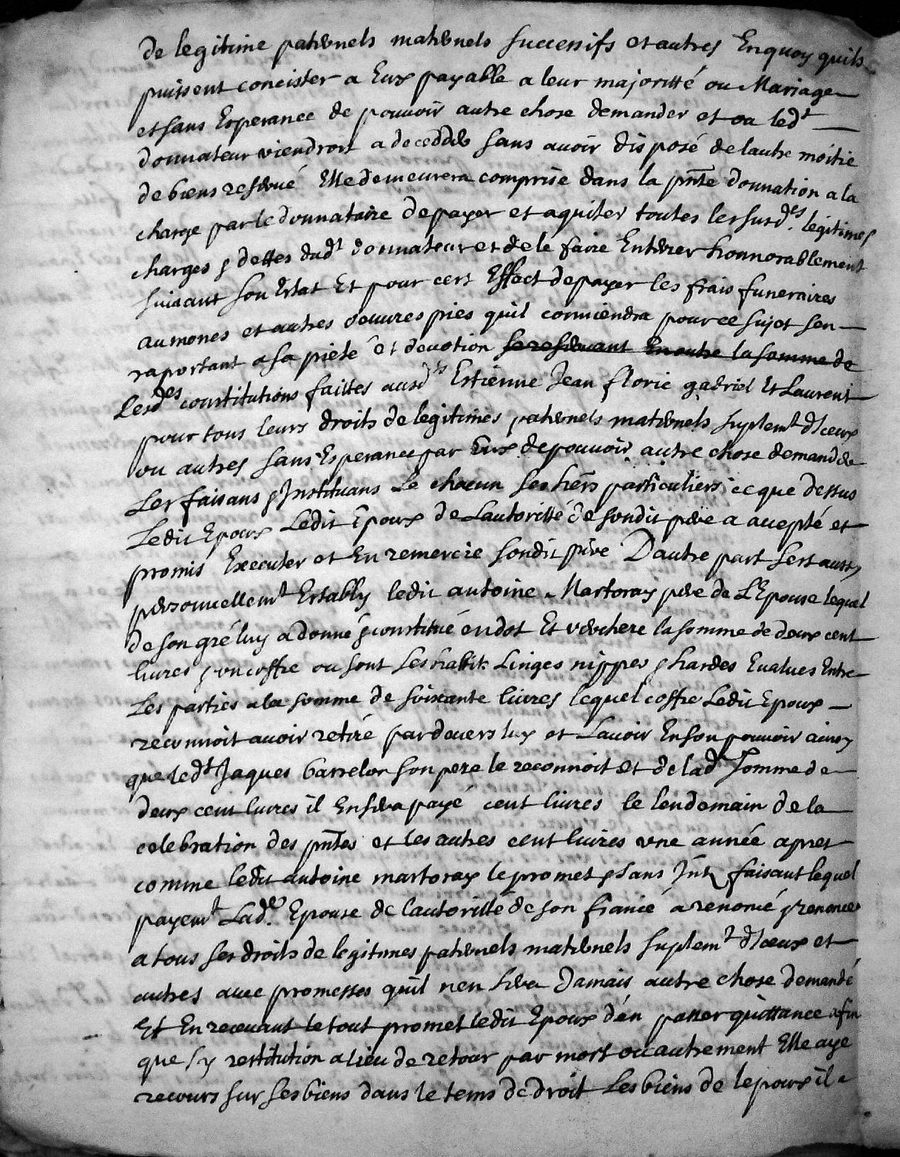 de legitime paternels maternels successifs et autres En quoy quils
puissent concister a Eux payable a leur majoritté ou Mariage
et sans Esperance de pouvoir autre chose demander et ou ledt
donnateur viendroit a decedder sans avoir disposé de lautre moitié
de biens reservé Elle demeurera comprise dans la pnte donnation a la
charge par le donnataire de payer et aquiter toutes les susdes legitimes
charges & dettes dudt donnateur et de le faire Enterrer honnorablement
suivant son Estat Et pour cest Effect de payer les frais funeraires
aumones et autres oeuvres pies quil conviendra pour ce sujet sen
raportant a sa pieté et devotion se reservant En outre la somme de
Lesdes constitutions faittes ausdts Estienne Jean florie gabriel Et Laurent
pour tous leurs droits de legitimes paternels maternels suplemt diceux
ou autres sans Esperance par Eux de pouvoir autre chose demander
Les faisans & Instituans Le chacun ses hers particuliers ce que dessus
Ledit Epoux Ledit Epoux de Lautoritte de sondit pere a accepté et
promis Executer et En remercie sondit pere Dautre part sest aussy
personnellemt Estably ledit antoine Martoray pere de LEpouse lequel
de son gré luy a donné & constitué en dot Et verchere la somme de deux cent
livres & un coffre ou sont ses habits Linges nippes & hardes Evalues Entre
Les parties a la somme de soixante livres lequel coffre Ledit Epoux
reconnoit avoir retiré pardevers luy et Lavoir En son pouvoir ainsy
que ledt Jaques barrelon son pere le reconnoit et de lade somme de
deux cent livres il En sera payé cent livres le lendemain de la
celebration des pntes et les autres cent livres une année apres
comme ledit antoine martoray le promet & sans Intt faisant lequel
payemt Lade Epouse de lautoritte de son fiancé a renoncé & renonce
a tous ses droits de legitimes paternels maternels suplemt diceux et
autres avec promesses quil nen sera Jamais autre chose demandé
Et En recevant le tout promet ledit Epoux den passer quittance afin
que sy restitution a lieu de retour par mort ou autrement Elle aye
recours sur ses biens dans le tems de droit Les biens de lepoux il